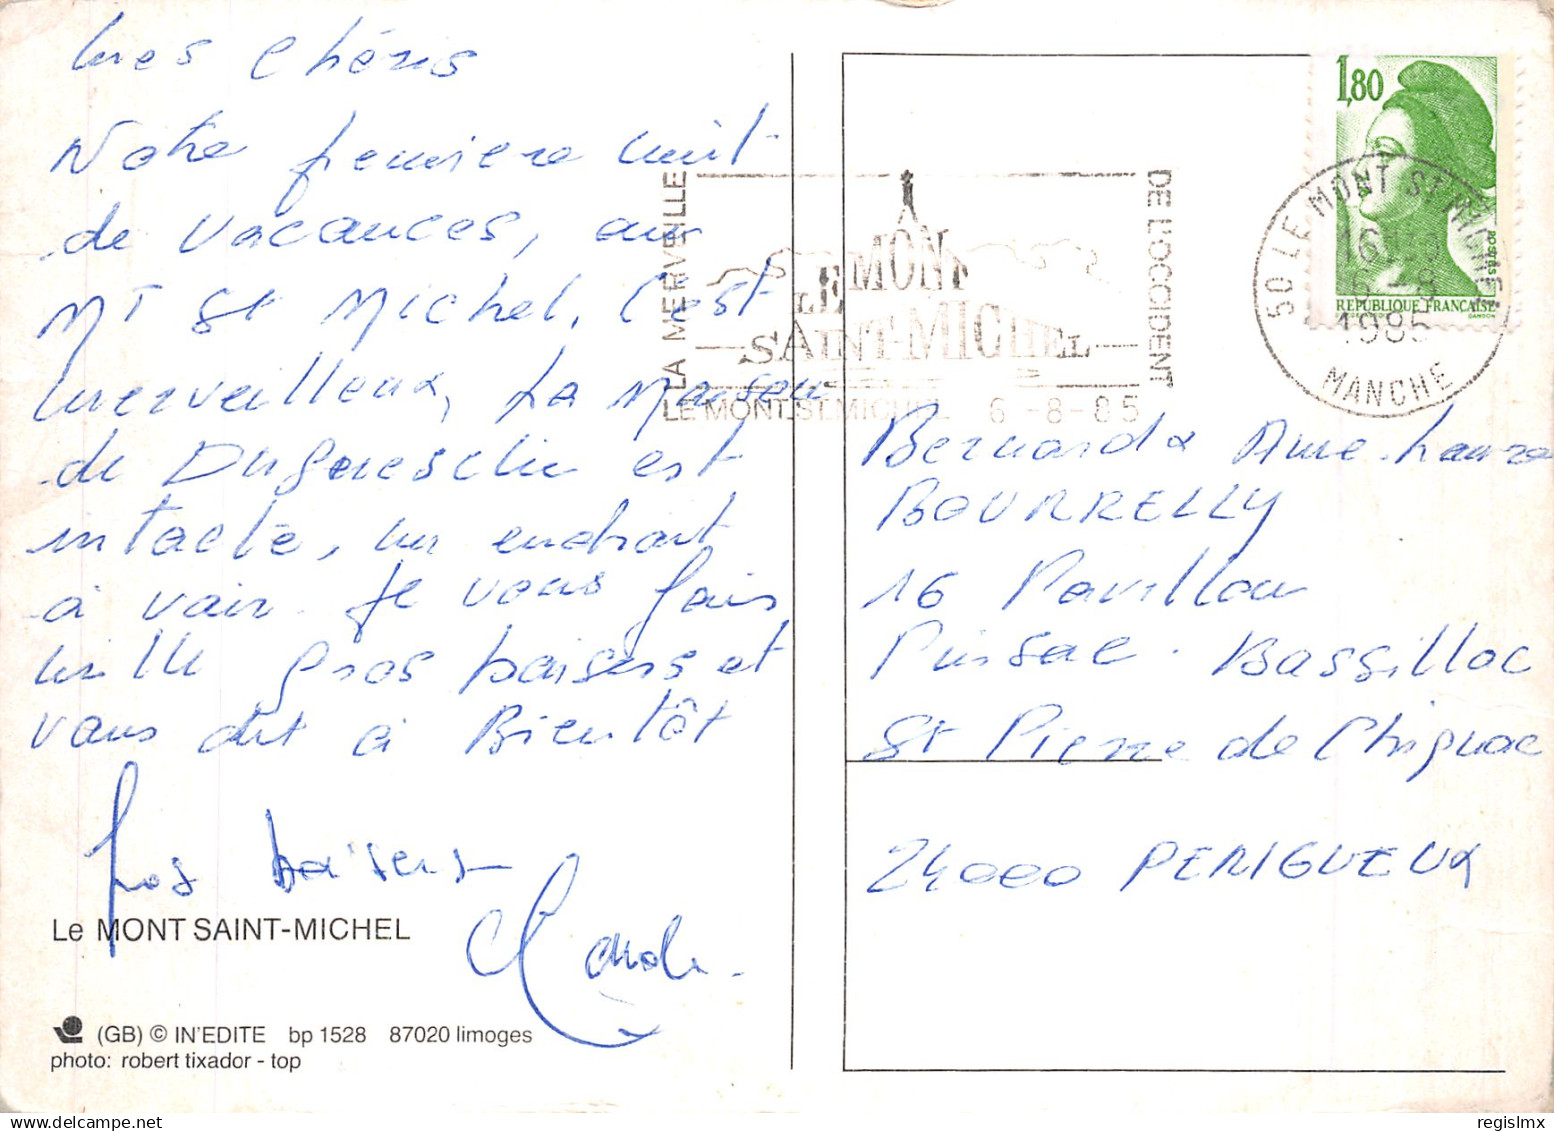 Mes Chéris
Notre première nuit
de vacances, au
MT St Michel, C'est
merveilleux, La Maison
de Duguesclin est
intacte, un endroit
à voir. Je vous fais
mille gros baisers et
vous dit à Bientôt
Gros baisers
Claude
Le MONT SAINT-MICHEL
(GB) © IN'EDITE bp 1528 87020 limoges
photo: robert tixador - top
LA MERVEILLE
DE L'OCCIDENT
LE MONT
SAINT-MICHEL
LE MONT ST MICHEL 6-8-85
1,80
POSTES
REPUBLIQUE FRANÇAISE
GANDON
50 LE MONT ST MICHEL
6-8
1985
MANCHE
Bernard & Anne-Laure
BOURRELLY
16 Pavillon
Pinsac. Bassillac
St Pierre de Chignac
24000 PERIGUEUX
regislmx